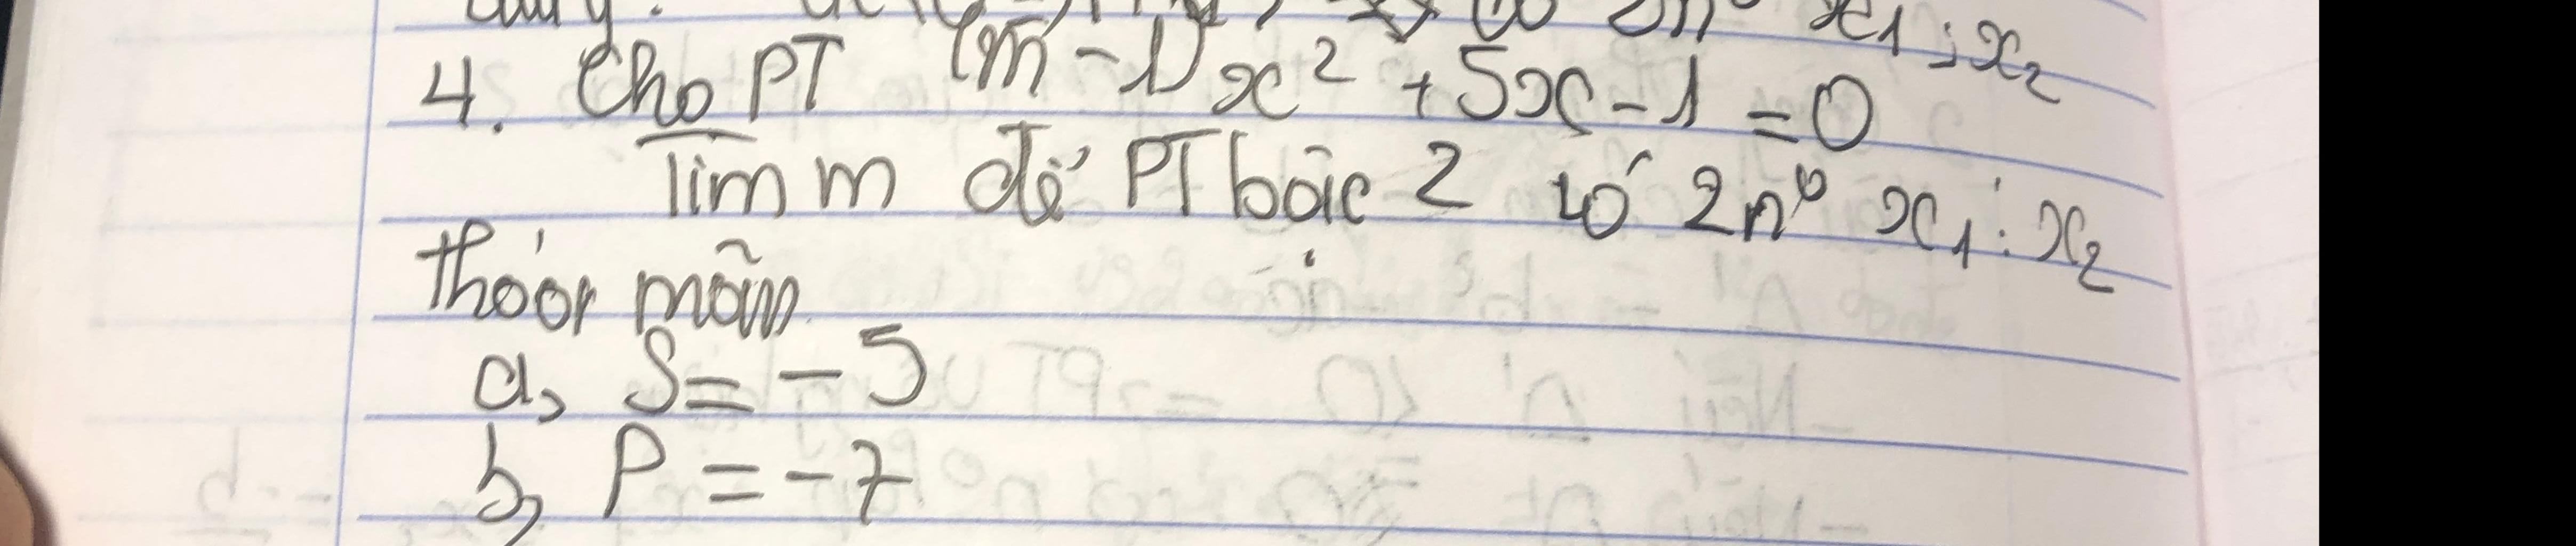 x1 ; x2
4. Cho PT (m - 1)x² + 5x - 1 = 0
Tìm m để PT bậc 2 có 2n⁰ x1 ; x2
thỏa mãn
a, S = - 5
b, P = - 7